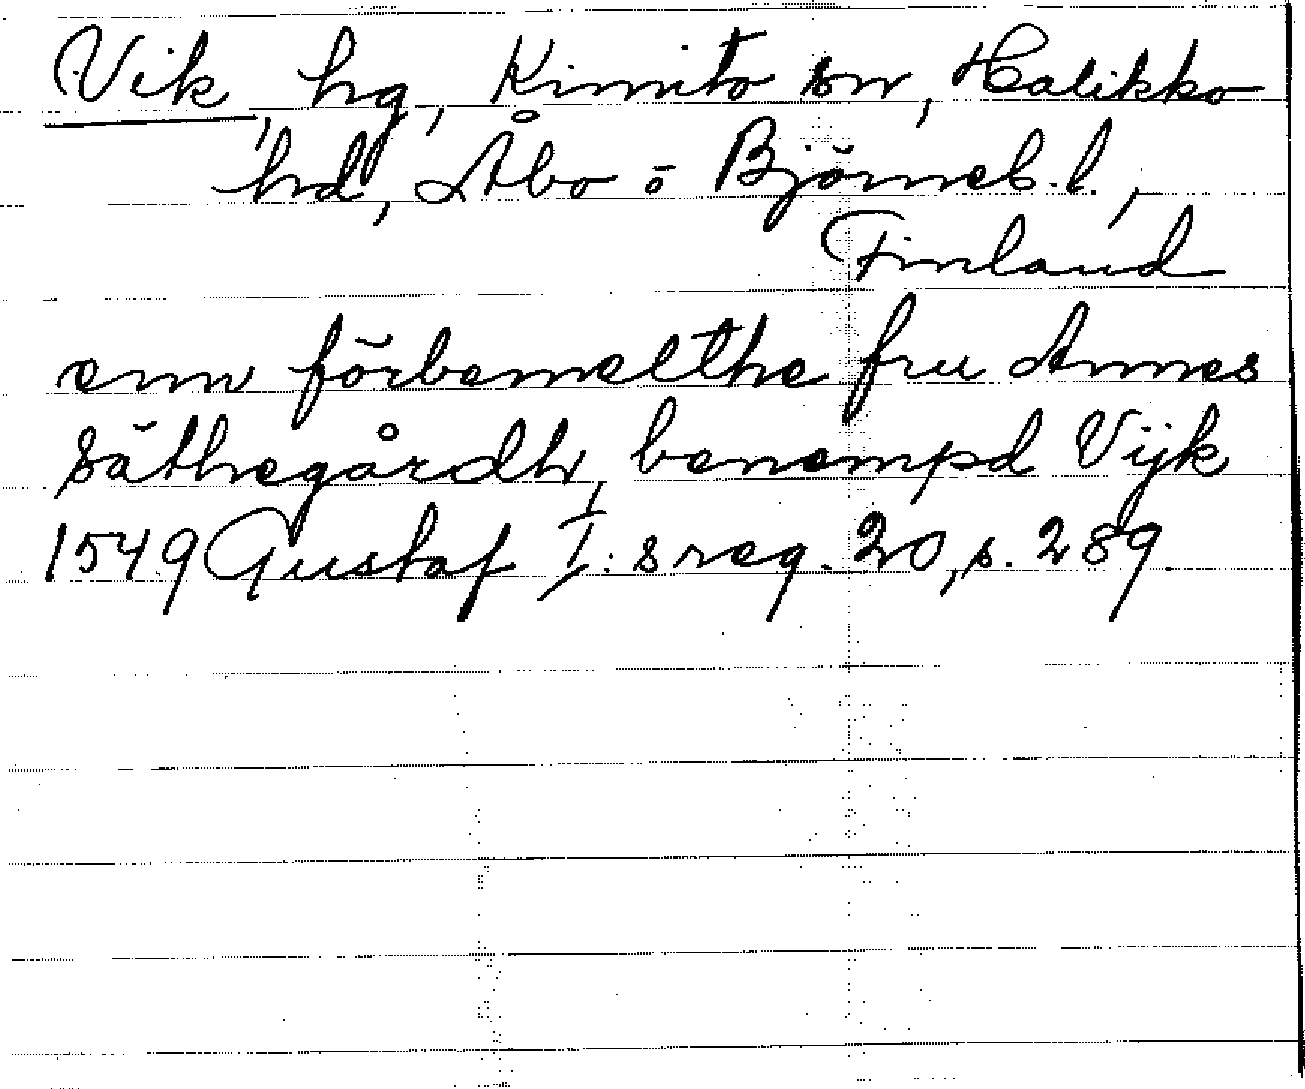 Vik, hg, Kimito sn, Halikko
hd, Åbo o Björneb. l.,
Finland
enn förbemelthe fru Annes
säthegårdh, benempd Vijk
1549 Gustaf I:s reg. 20, s. 289